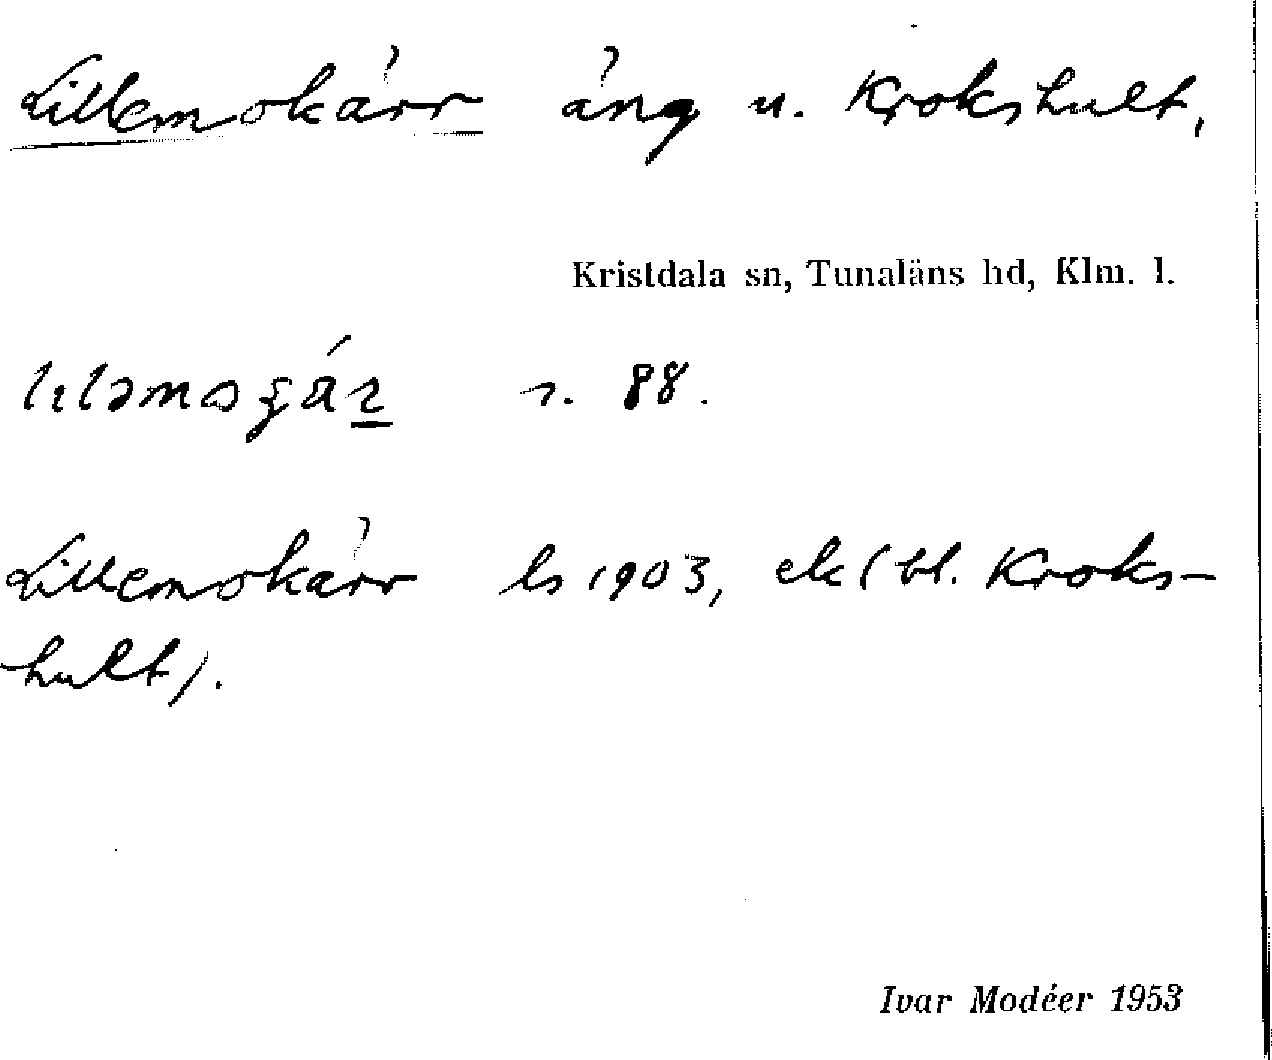 Lillemokärr äng u. Krokshult,
Kristdala sn, Tunaläns hd, Klm. l.
s. 88.
Lillemokärr ls 1903, ek (bl. Kroks-
hult).
Ivar Modéer 1953